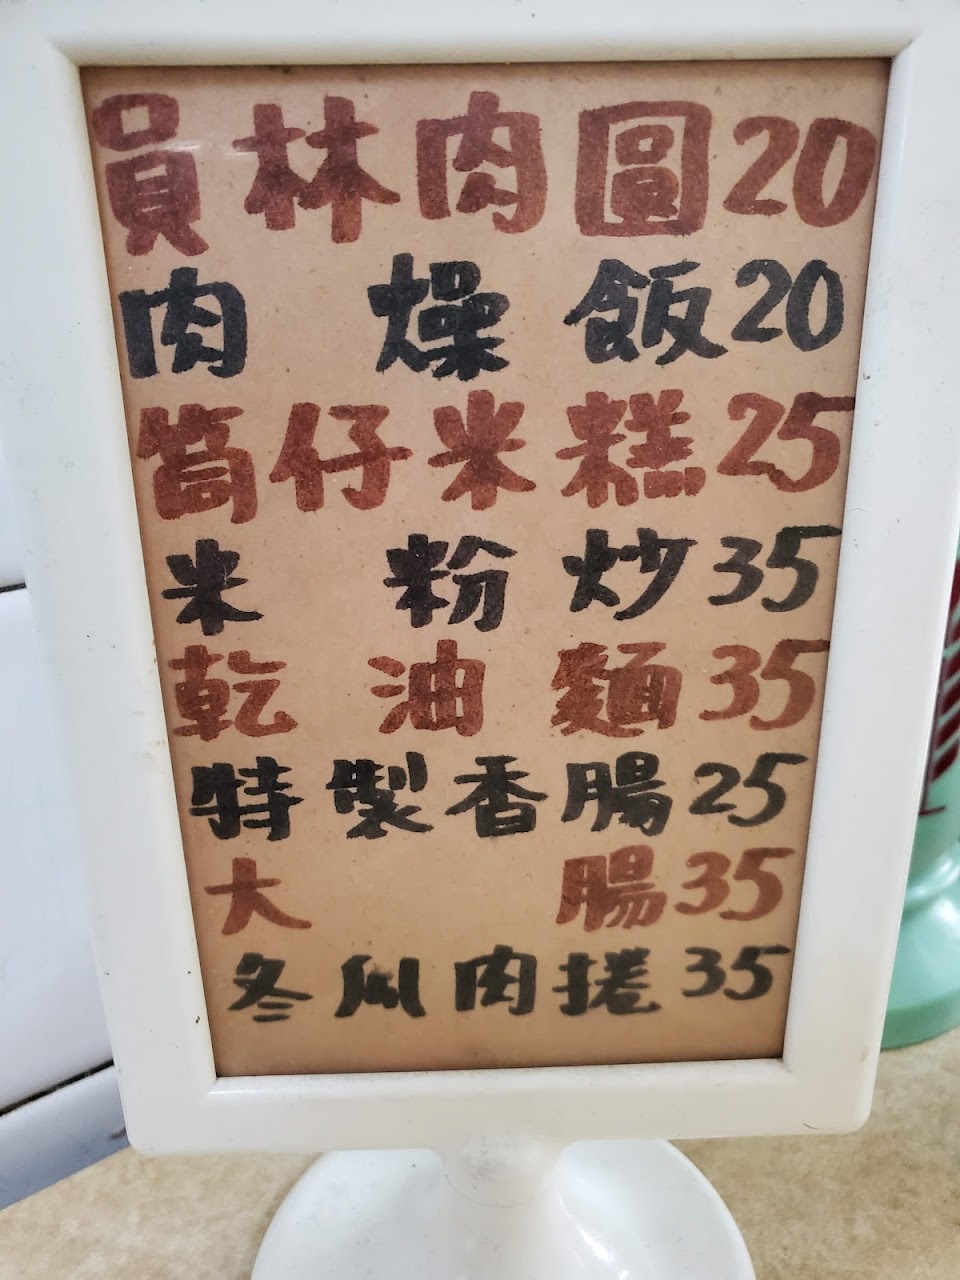 員林肉圓20
肉燥飯20
筒仔米糕25
米粉炒35
乾油麵35
特製香腸25
大腸35
冬瓜肉捲35